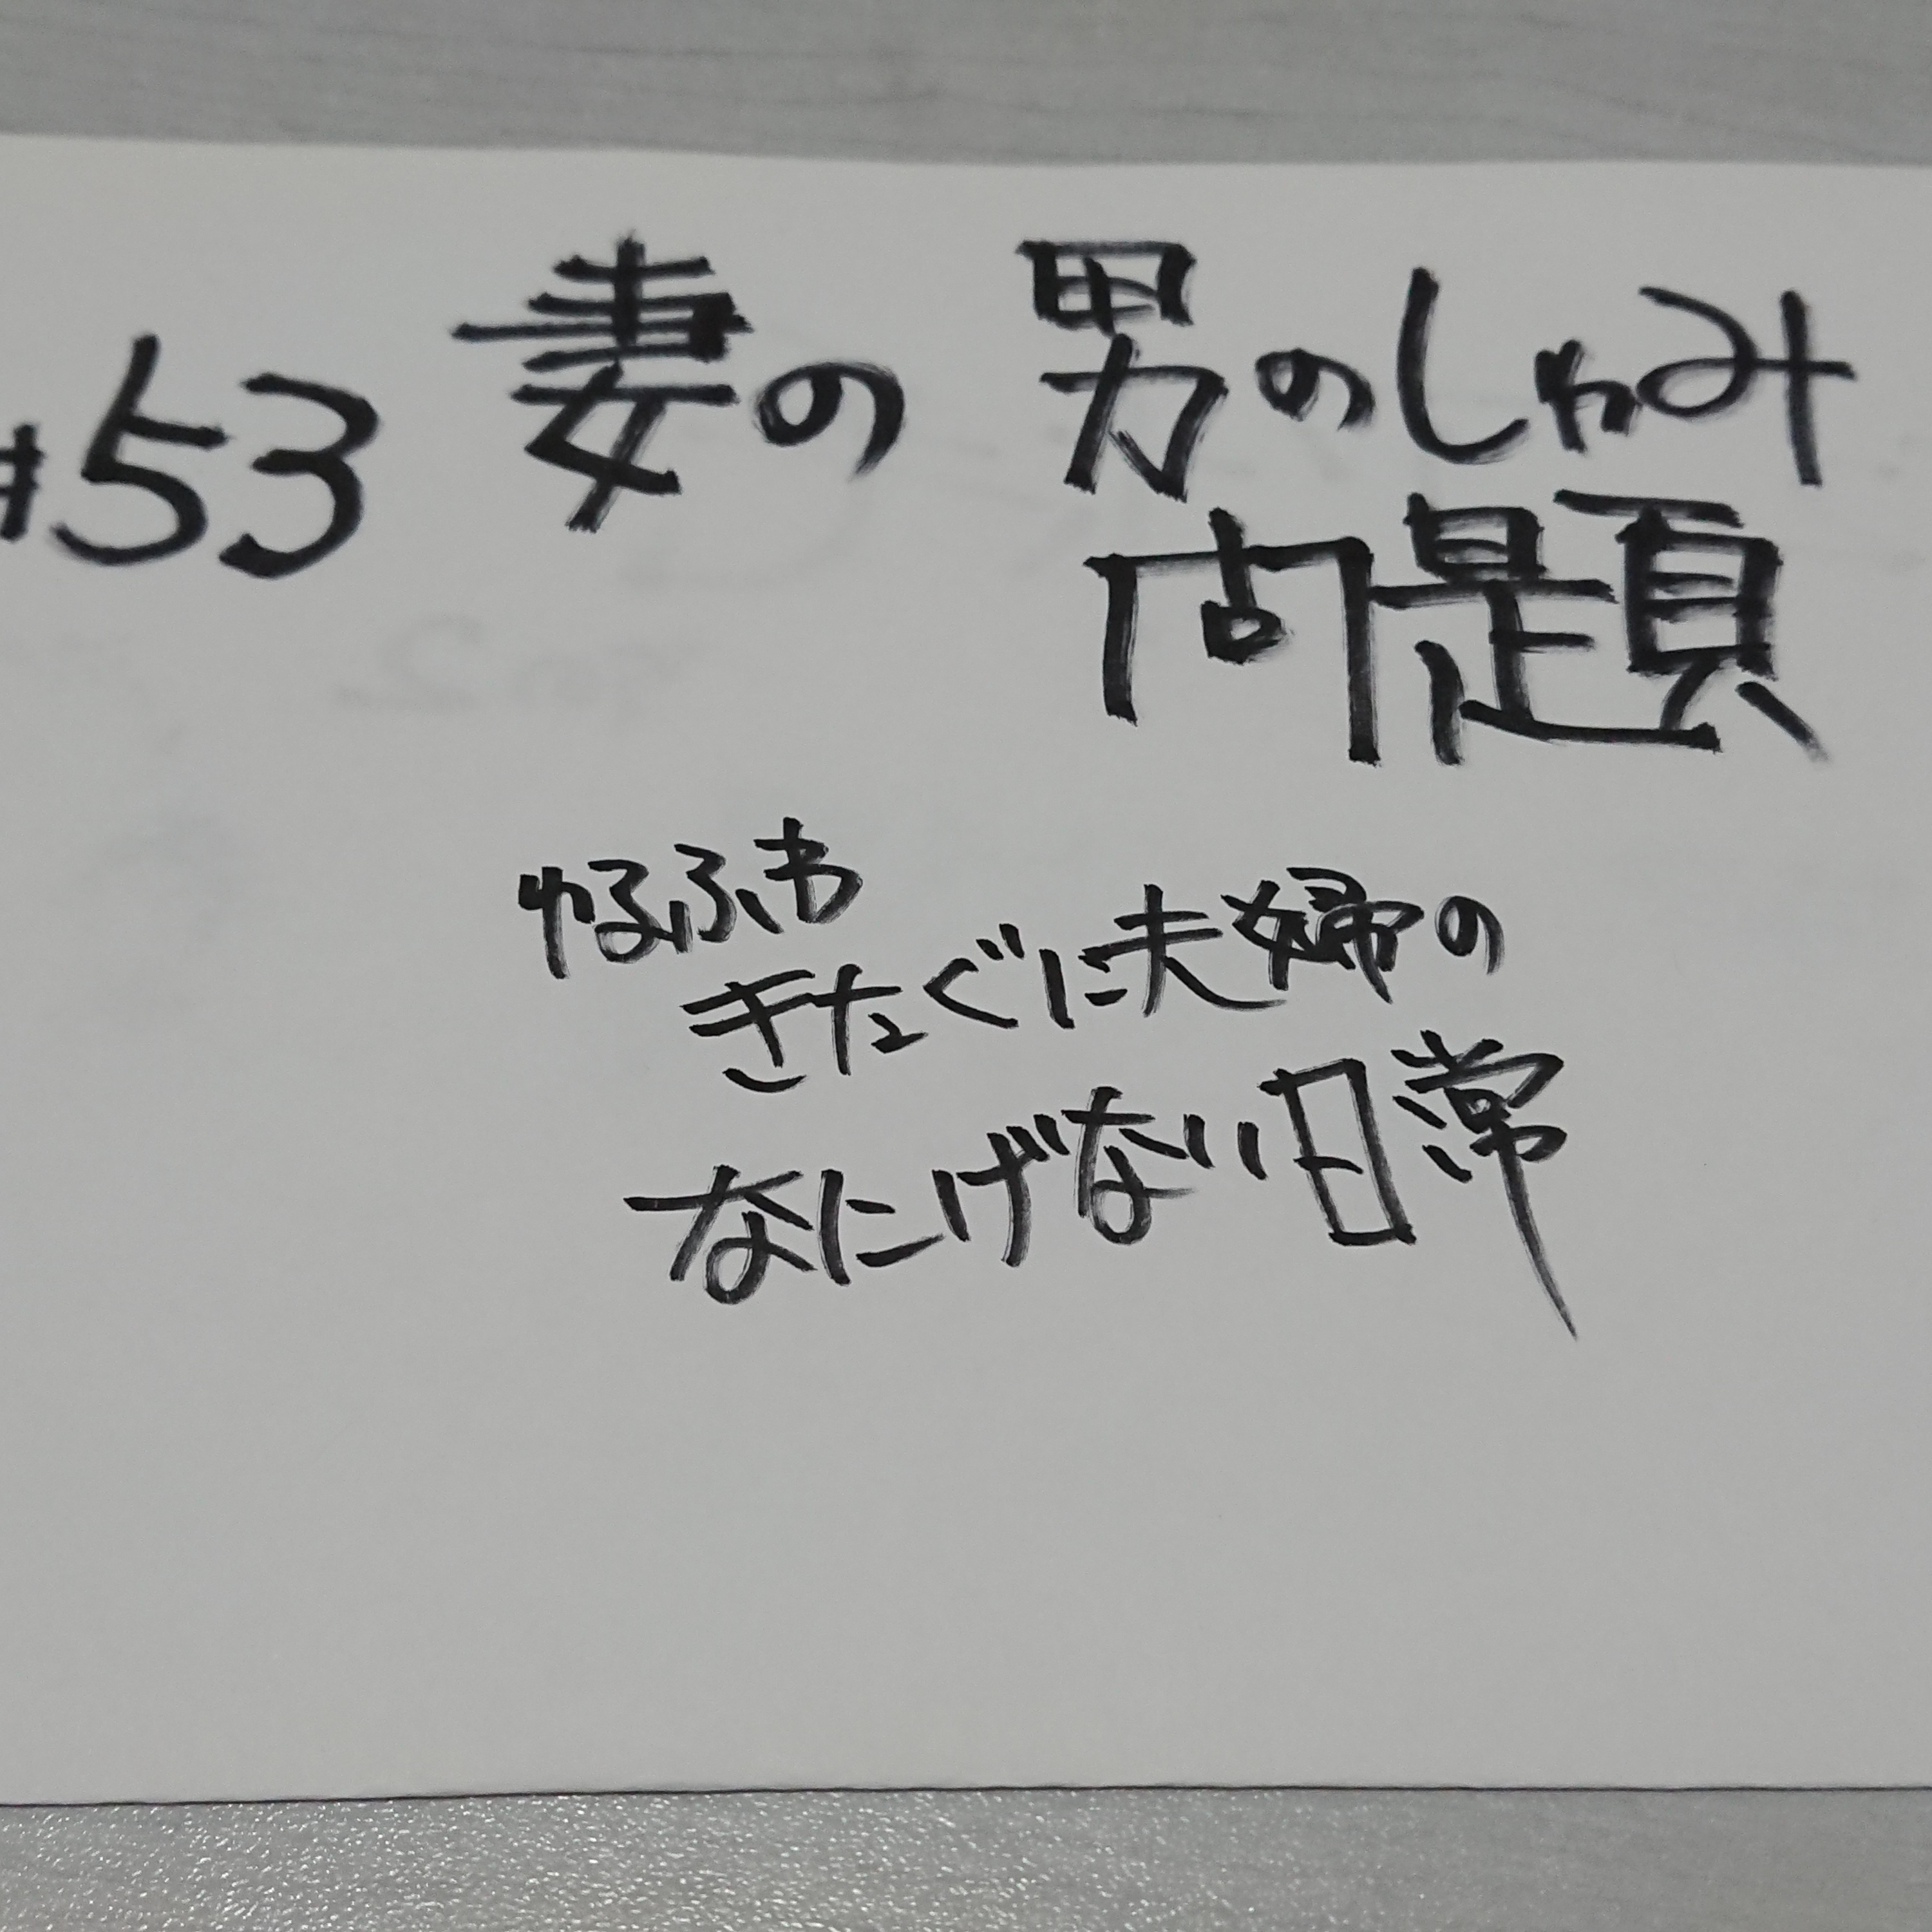 #53 妻の 男のしゅみ
問題
ゆるふわ
きたぐに夫婦の
なにげない日常